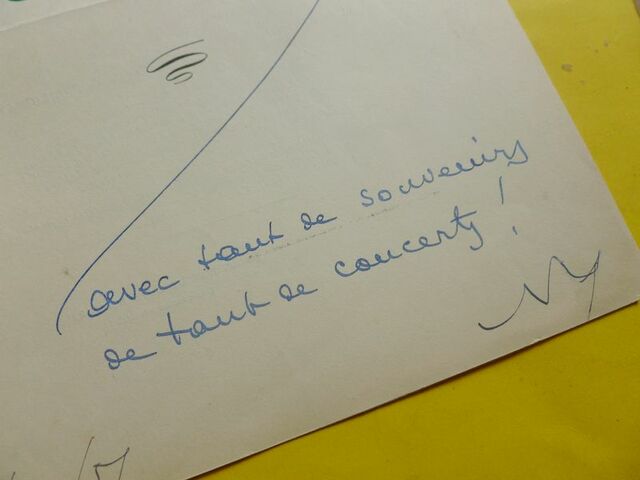 avec tant de souvenirs
de tant de concerts !